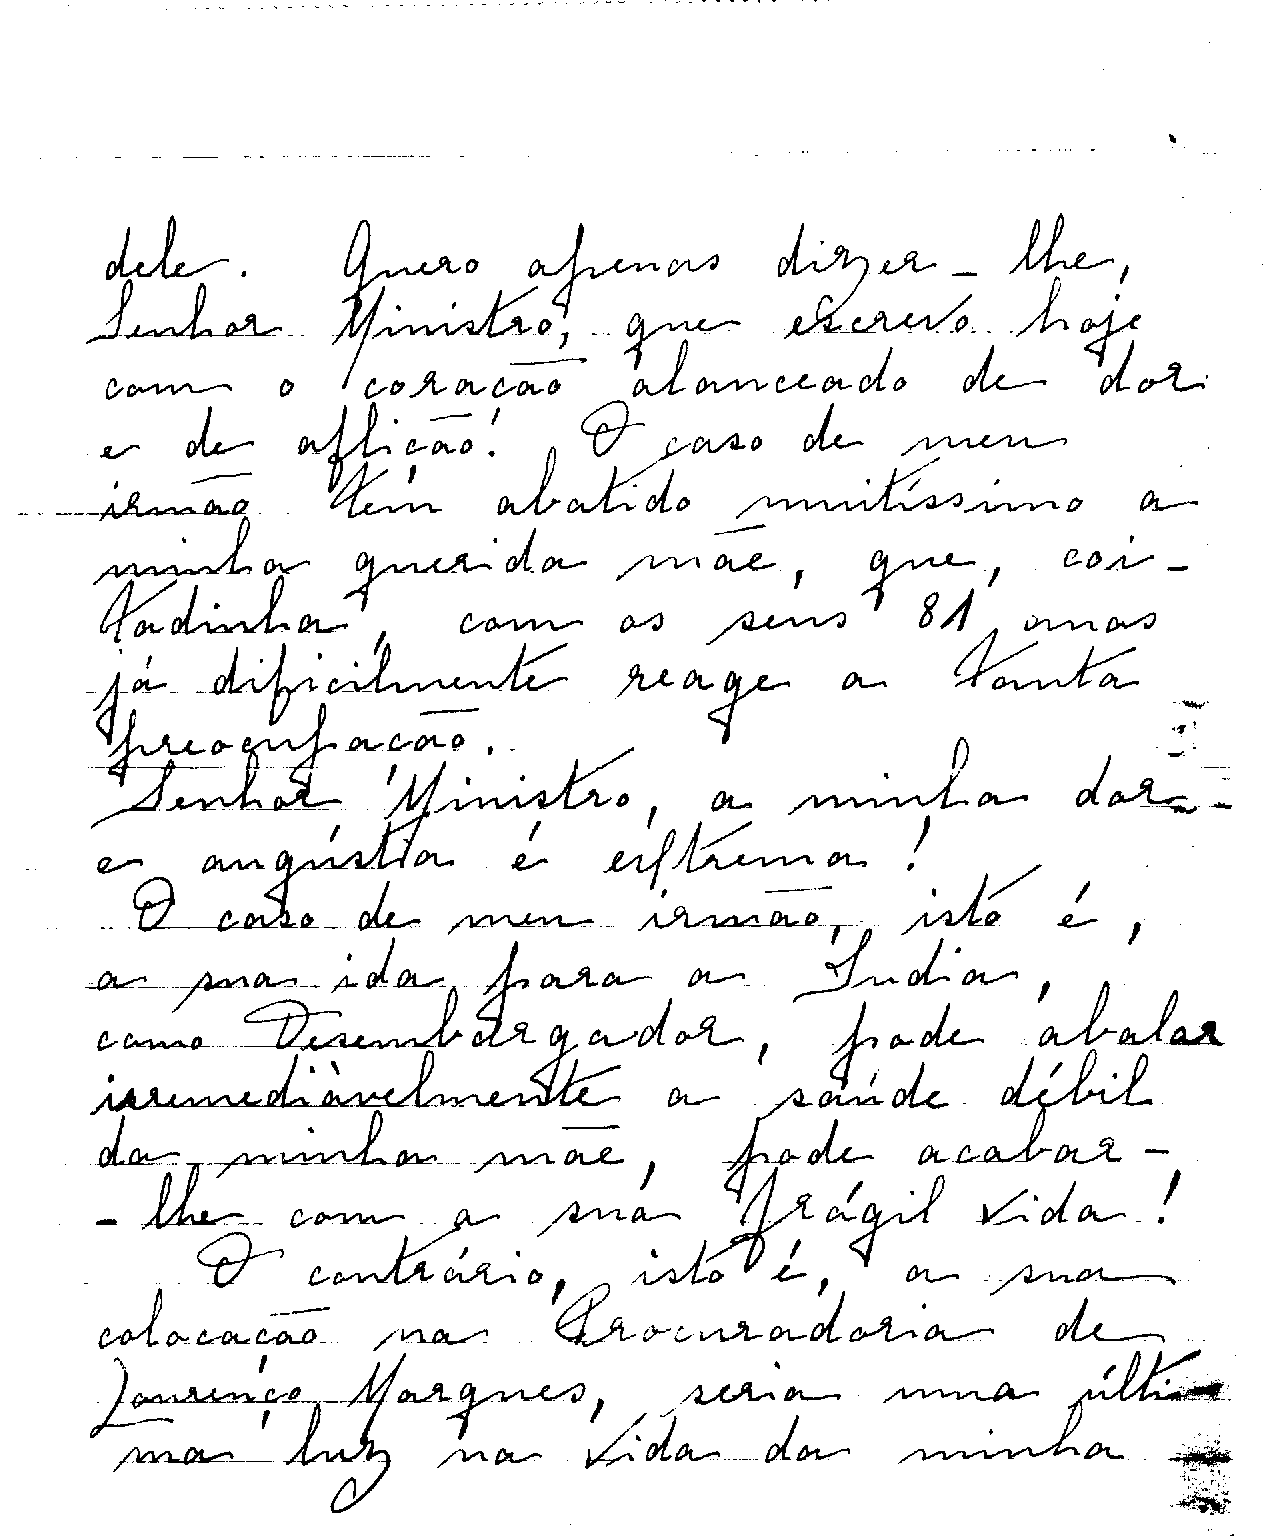 dele. Quero apenas dizer-lhe,
Senhor Ministro, que escrevo hoje
com o coração alanceado de dor
e de aflição! O caso de meu
irmão tem abatido muitíssimo a
minha querida mãe, que, coi-
tadinha, com os seus 81 anos
já dificilmente reage a tanta
preocupação.
Senhor Ministro, a minha dor
e angústia é extrema!
O caso de meu irmão, isto é,
a sua ida para a India,
como Desembargador, pode abalar
irremediàvelmente a saúde débil
da minha mãe, pode acabar-
-lhe com a sua frágil vida!
O contrário, isto é, a sua
colocação na Procuradoria de
Lourenço Marques, seria uma últi
ma luz na vida da minha